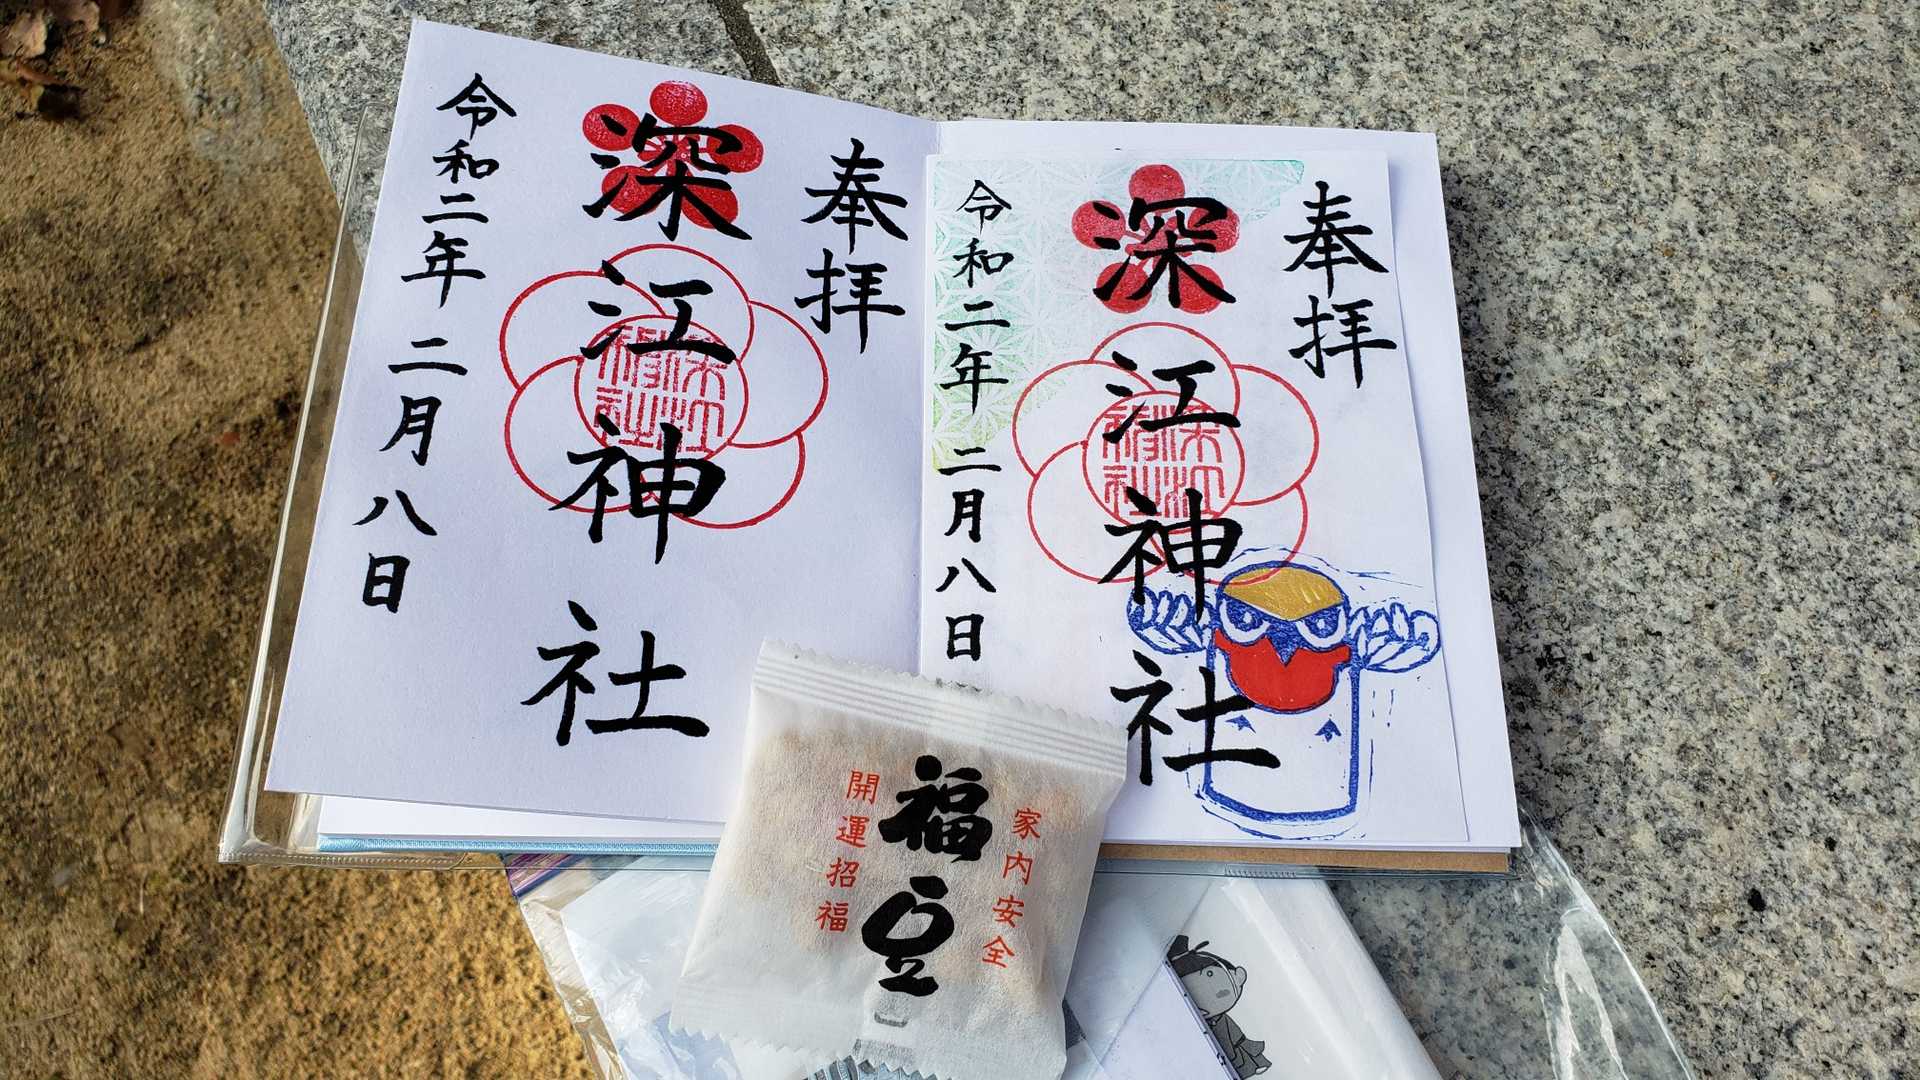 奉拝
深江神社
令和二年二月八日
奉拝
深江神社
令和二年二月八日
深江
神社
深江
神社
家内安全
福豆
開運招福